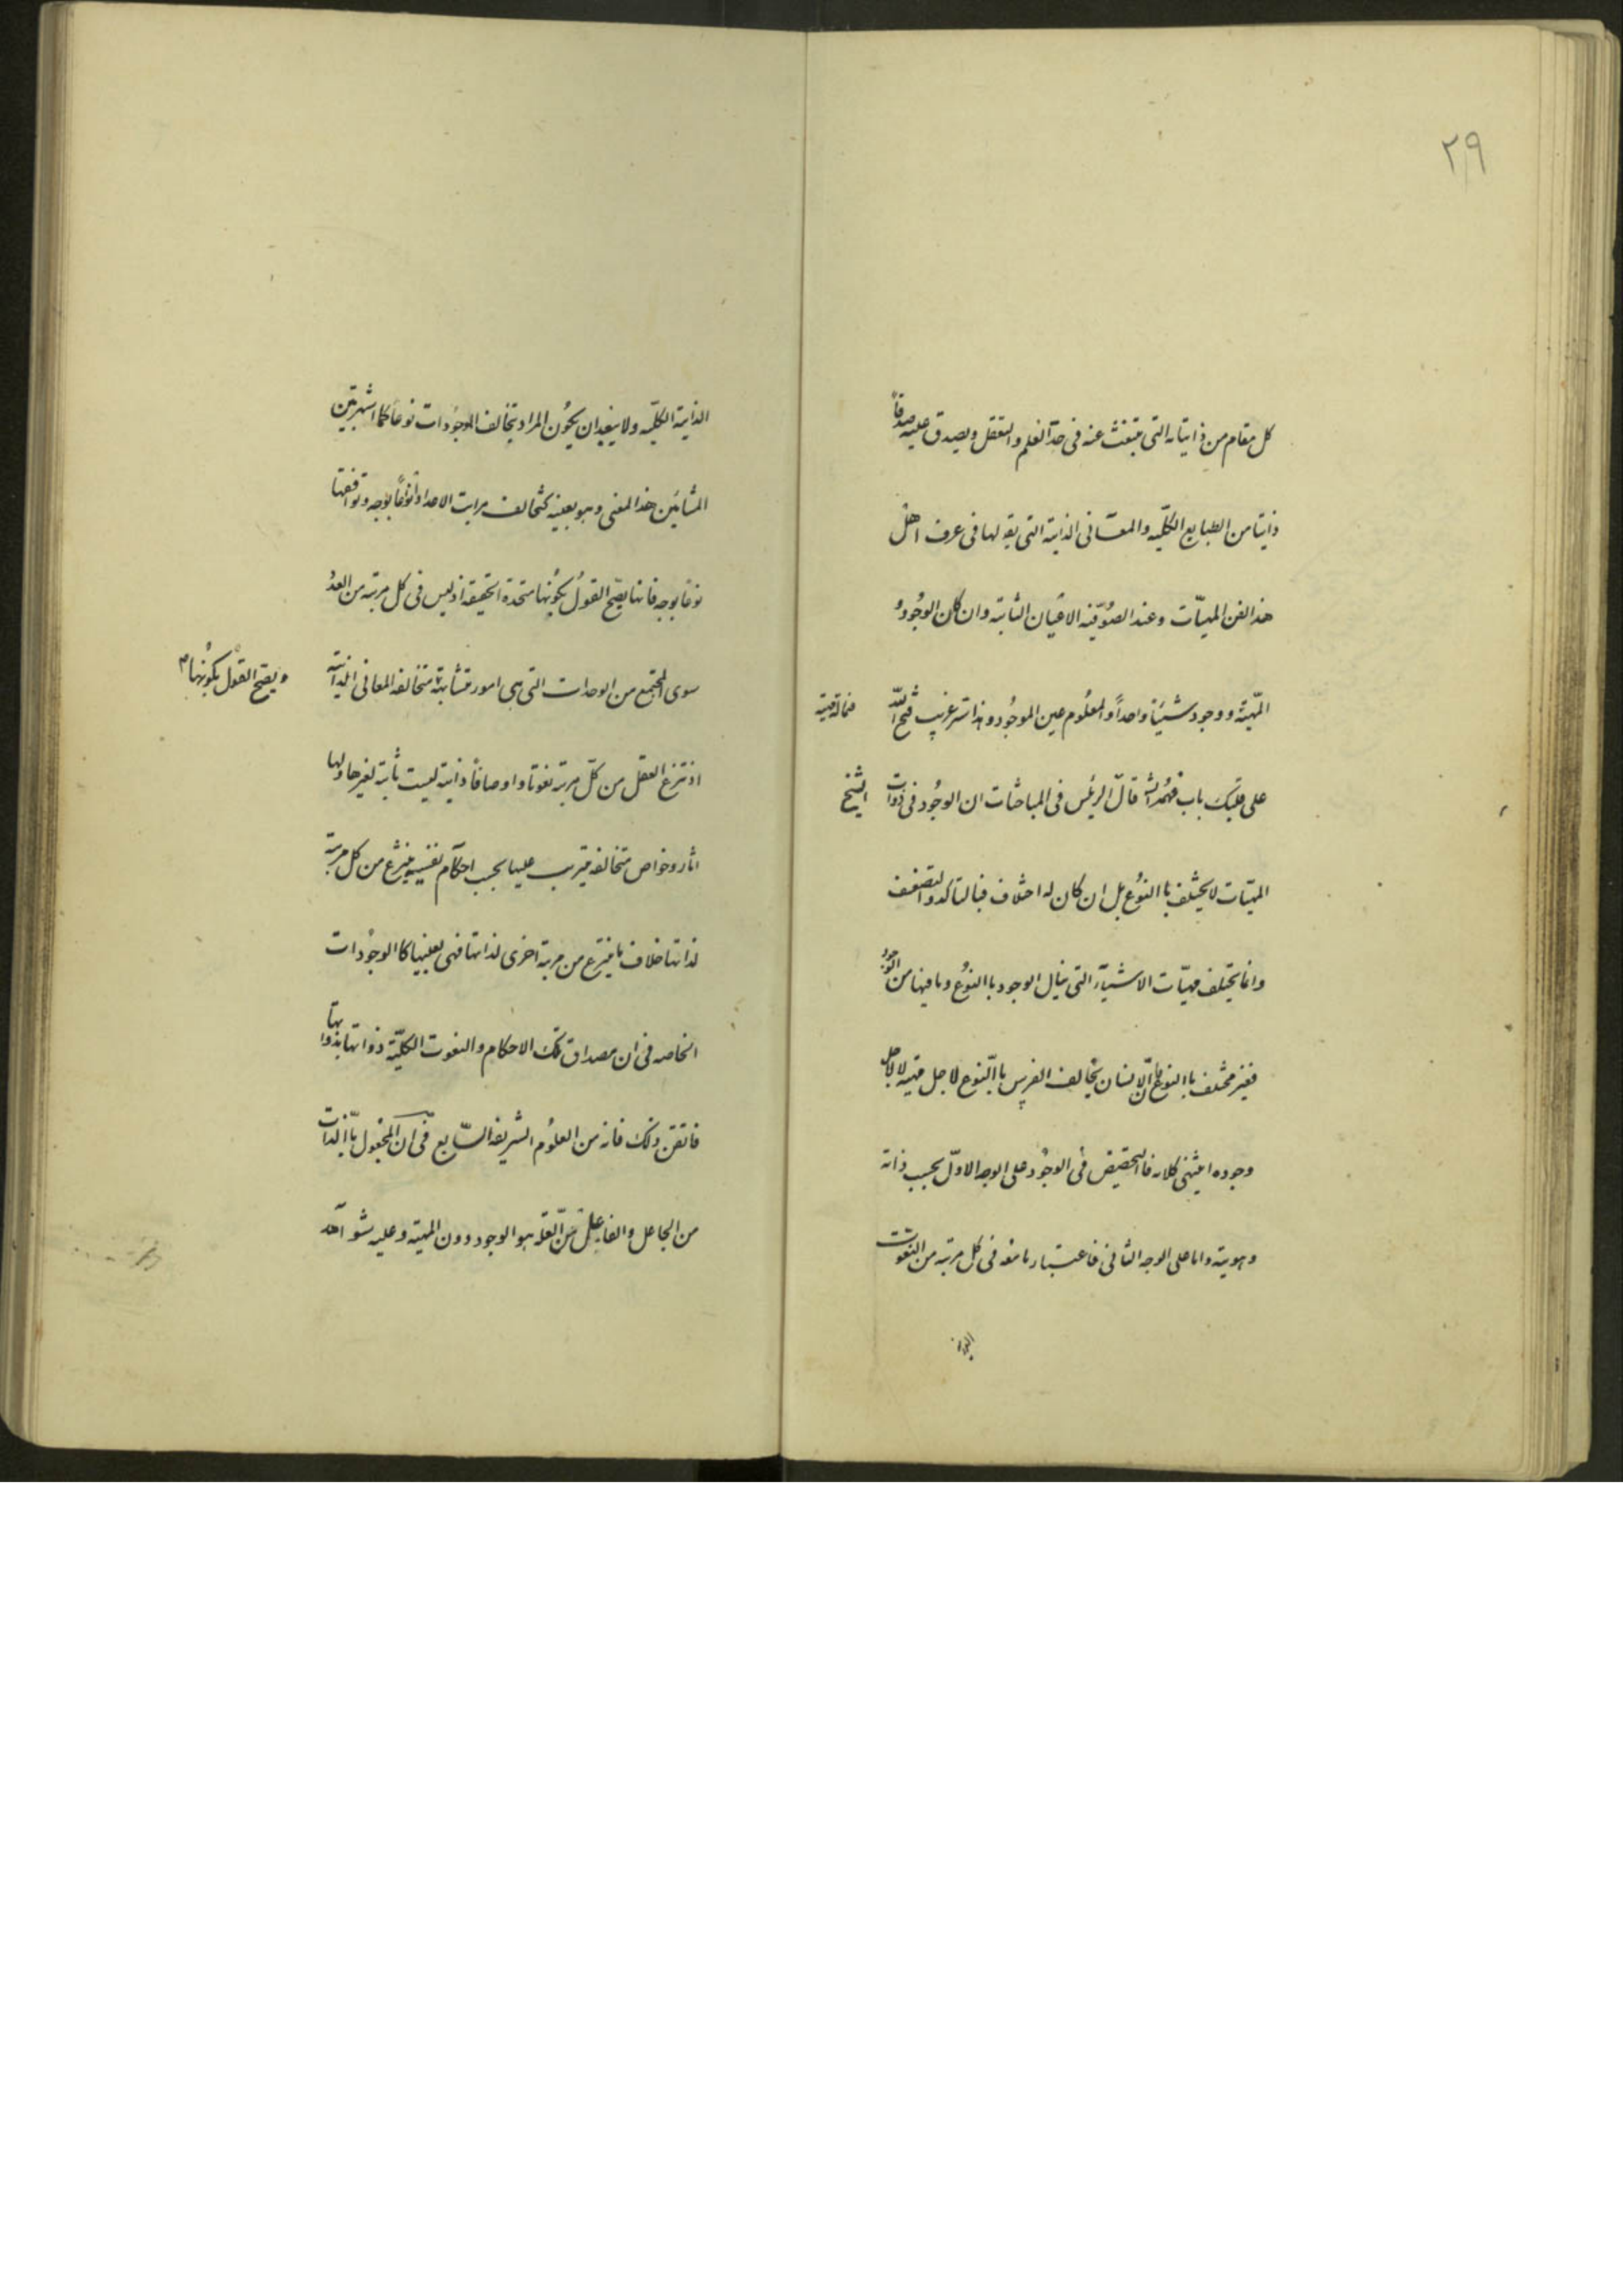 ٢٩
كل مقام من ذاتياته التى تنبعث عنه فى حدّ العلم والتعقل ويصدق عليه صدقاً
ذاتيا من الطبايع الكليّه والمعانى الذاتية التى يقو لها فى عرف اهل
هذ الفن المهيّات وعند الصُّوفيّه الاعيان الثابته وان كان الوجُودُ
المهيّة ووجود شيئاً واحداً والمعلُوم عين الموجُود وهذا سر غريب فتح اللّه
على قلبك باب فهمه قال الرئيس فى المباحثات ان الوجُود فى ذوات
الشيخ
المهيّات لا يختلف با النوُع بل ان كان له اختلاف فبالتاكد والتضعف
وانما يختلف مهيّات الاشيآء التى ينال الوجود با النوُع وما فيها من الوجُود
فغير مختلف با النوع فانّ الانسان يخالف الفرس با النّوع لاجل مهيته لا لاجل
وجوده انتهى كلامه فا التخصيص فى الوجُود على الوجه الاوّل بحسب ذاته
وهويته واما على الوجه الثانى فاعتبار ما معه فى كل مرتبه من النعوت
الذاتية الكليّه ولا يبعد ان يكُون المراد بتخالف الموجُودات نوعاً كما اشتهر بين
المشائين هذا المعنى وهو بعينه كتخالف مراتب الاعداد انوُعاً بوجه وتوافقها
نوعاً بوجه فانها يصّح القوُل بكوُنها متحدة الحقيقه اذ ليس فى كل مرتبه من العددُ
سوى المجتمع من الوحدات التى هى امور متشابهة متخالفه المعانى الذاتية
ويصّح القوُل بكوُنها
اذ ينتزع العقل من كلّ مرتبه نعوتا واوصافاً ذاتية ليست ثابته لغيرها ولها
اثار وخواص متخالفه يترتب عليها بحسب احكام نفسيه ينتزع من كل مرتبة
لذاتها خلاف ما ينتزع من مرتبة اخرى لذاتها فهى بعينها كا الوجوُدات
الخاصه فى ان مصداق تلك الاحكام والنعوت الكليّه ذواتها بذواتها
فاتقن ذلك فانه من العلوُم الشريفه السّابع فى ان المجعُول با الّذات
من الجاعل والفايض من العلّة هو الوجود دون المهية وعليه شوآهد